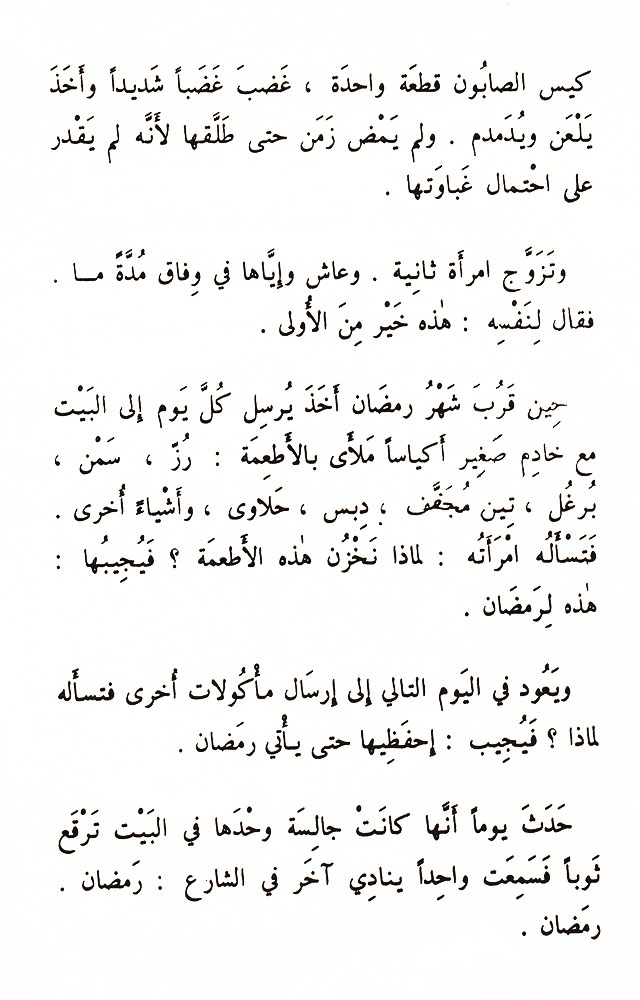 كيس الصابُون قطعَة واحدَة ، غَضبَ غَضَباً شَديداً وأَخَذَ
يَلْعَن ويُدَمدم . ولم يَمْض زَمَن حتى طَلَّقها لأَنَّه لم يَقْدر
على احْتمال غَباوَتها .
وتَزَوَّج امرأَة ثانِية . وعاش وإِيَّاها في وِفاق مُدَّةً مـا .
فقال لِنَفْسِه : هٰذه خَيْر مِنَ الأُولى .
حِين قَرُبَ شَهْرُ رمضَان أَخَذَ يُرسِل كُلَّ يَوم إلى البَيْت
مع خادِم صَغِير أَكياساً مَلأَى بالأَطعِمَة : رُزّ ، سَمْن ،
بُرغُل ، تِين مُجَفَّف ، دِبس ، حَلاوى ، وأَشْياءً أُخرى .
فَتَسْأَلُه امْرَأَتُه : لماذا نَخْزُن هٰذه الأَطعمَة ؟ فَيُجِيبُها :
هٰذه لِرَمضَان .
ويَعُود في اليَوم التالي إلى إِرسَال مأْكُولات أُخرى فتسأَله
لماذا ؟ فَيُجِيب : إِحفَظِيها حتى يأْتي رمَضان .
حَدَثَ يوماً أَنَّها كانَتْ جالِسَة وحْدَها في البَيْت تَرْقَع
ثَوباً فَسَمِعَت واحِداً ينادِي آخَر في الشارع : رَمضان .
رمَضان .